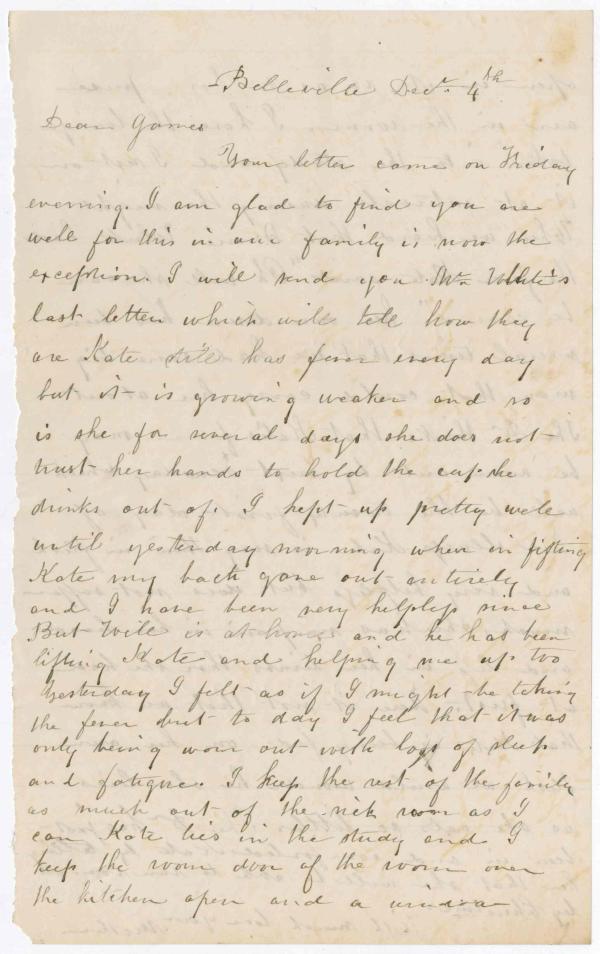 Belleville Decr 4th
Dear James
Your letter came on Friday
evening. I am glad to find you are
well for this in our family is now the
exception. I will send you Mr White's
last letter which will tell how they
are Kate still has fever every day
but it is growing weaker and so
is she for several days she does not
trust her hands to hold the cup she
drinks out of. I kept up pretty well
until yesterday morning when in fifting
Kate my back gave out entirely
and I have been very helpless since
But Will is at home and he has been
lifting Kate and helping me up too
Yesterday I felt as if I might be taking
the fever but to day I feel that it was
only being worn out with loss of sleep
and fatigue. I keep the rest of the family
as much out of the sick room as I
can Kate lies in the study and I
keep the room door of the room over
the kitchen open and a